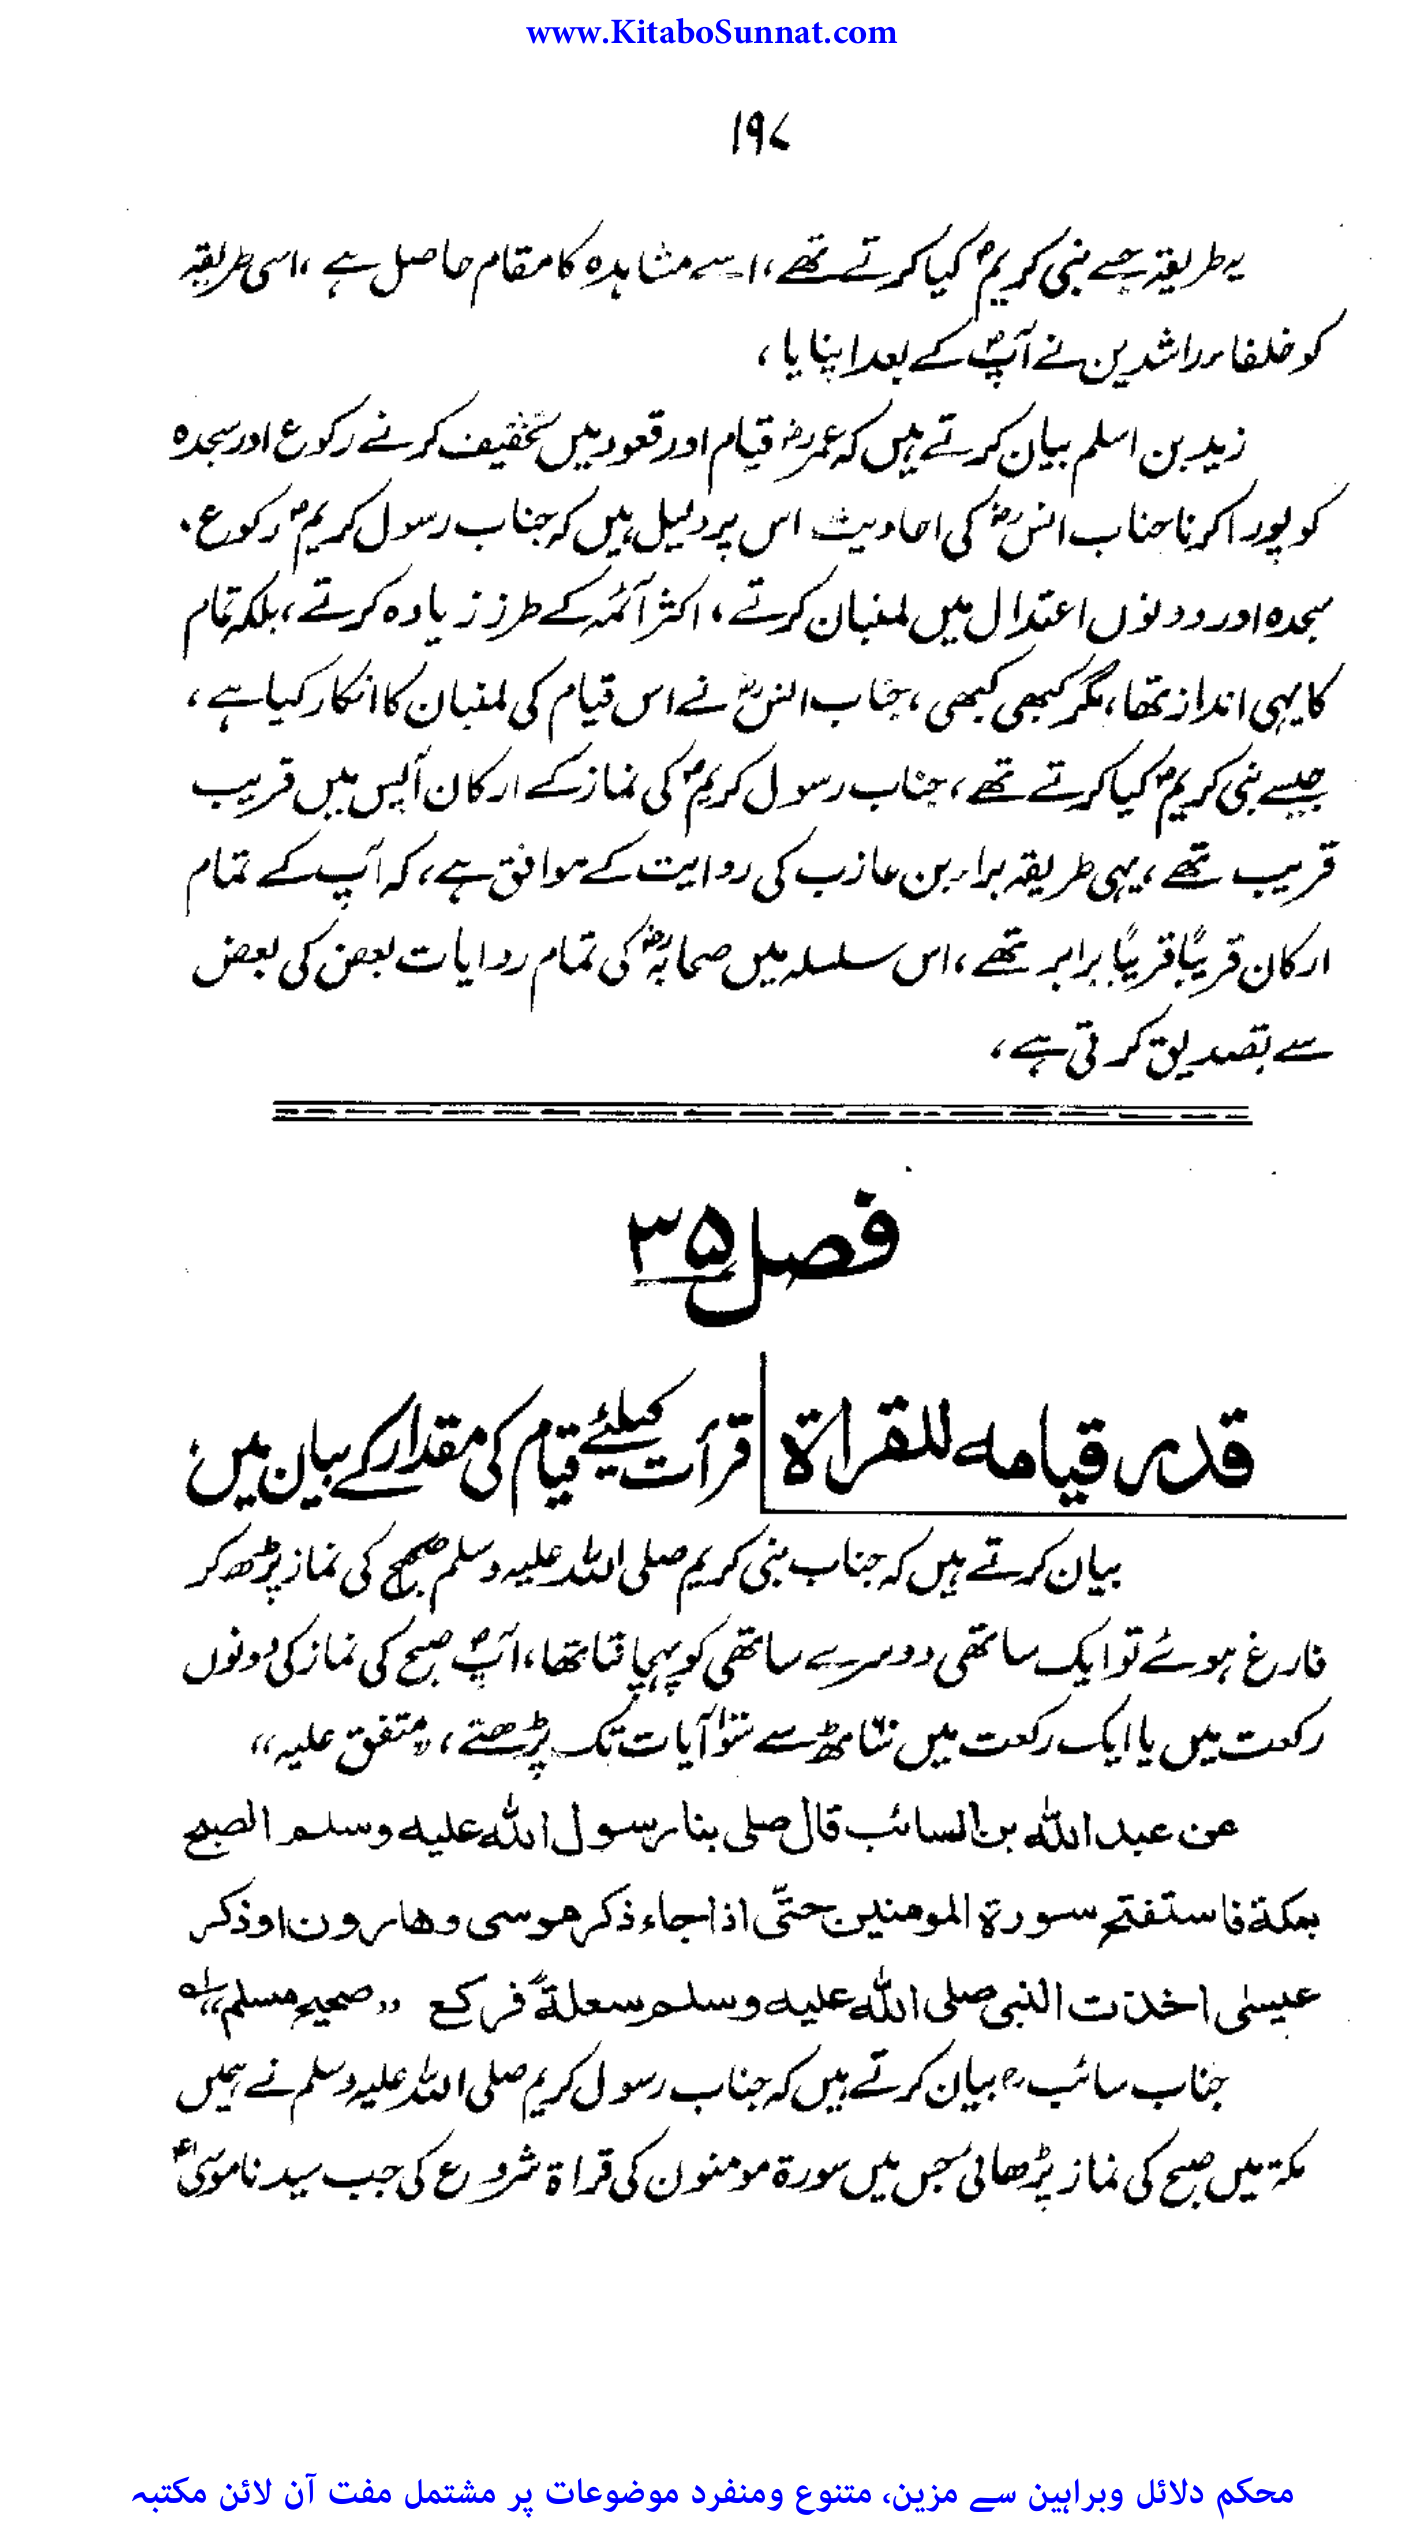 www.KitaboSunnat.com
۱۹۷
یہ طریقہ جسے نبی کریمؐ کیا کرتے تھے، اسے مشاہدہ کا مقام حاصل ہے، اسی طریقہ
کو خلفاء راشدین نے آپؐ کے بعد اپنایا،
زید بن اسلم بیان کرتے ہیں کہ عمرؓ قیام اور قعود میں تخفیف کرنے رکوع اور سجدہ
کو پورا کرنا جناب انسؓ کی احادیث اس پر دلیل ہیں کہ جناب رسول کریمؐ رکوع،
سجدہ اور دونوں اعتدال میں لمنبان کرتے، اکثر آئمہ کے طرز زیادہ کرتے، بلکہ تمام
کا یہی انداز تھا، مگر کبھی کبھی، جناب انسؓ نے اس قیام کی لمنبان کا انکار کیا ہے،
جیسے نبی کریمؐ کیا کرتے تھے، جناب رسول کریمؐ کی نماز کے ارکان آپس میں قریب
قریب تھے، یہی طریقہ براء بن عازب کی روایت کے موافق ہے، کہ آپ کے تمام
ارکان قریبًا قریبًا برابر تھے، اس سلسلہ میں صحابہؓ کی تمام روایات بعض کی بعض
سے تصدیق کرتی ہے،
فصل ۳۵
قدر قیامه للقراة
قرأت کیلئے قیام کی مقدار کے بیان میں،
بیان کرتے ہیں کہ جناب نبی کریم صلی اللہ علیہ وسلم صبح کی نماز پڑھ کر
فارغ ہوئے تو ایک ساتھی دوسرے ساتھی کو پہچانتا تھا، آپؐ صبح کی نماز کی دونوں
رکعت میں یا ایک رکعت میں ساٹھ سے سو آیات تک پڑھتے، “متفق علیہ”
عن عبد الله بن السائب قال صلى بنا رسول الله عليه وسلم الصبح
بمكة فاستفتح سورة المومنين حتّى اذا جاء ذكر موسى وهارون او ذكر
عيسٰى اخذت النبي صلى الله عليه وسلم سعلةً فركع “صحيح مسلم” لہ
جناب سائبؓ بیان کرتے ہیں کہ جناب رسول کریم صلی اللہ علیہ وسلم نے ہمیں
مکۃ میں صبح کی نماز پڑھائی جس میں سورۃ مومنون کی قراۃ شروع کی جب سیدنا موسیٰؑ
محکم دلائل وبراہین سے مزین، متنوع ومنفرد موضوعات پر مشتمل مفت آن لائن مکتبہ